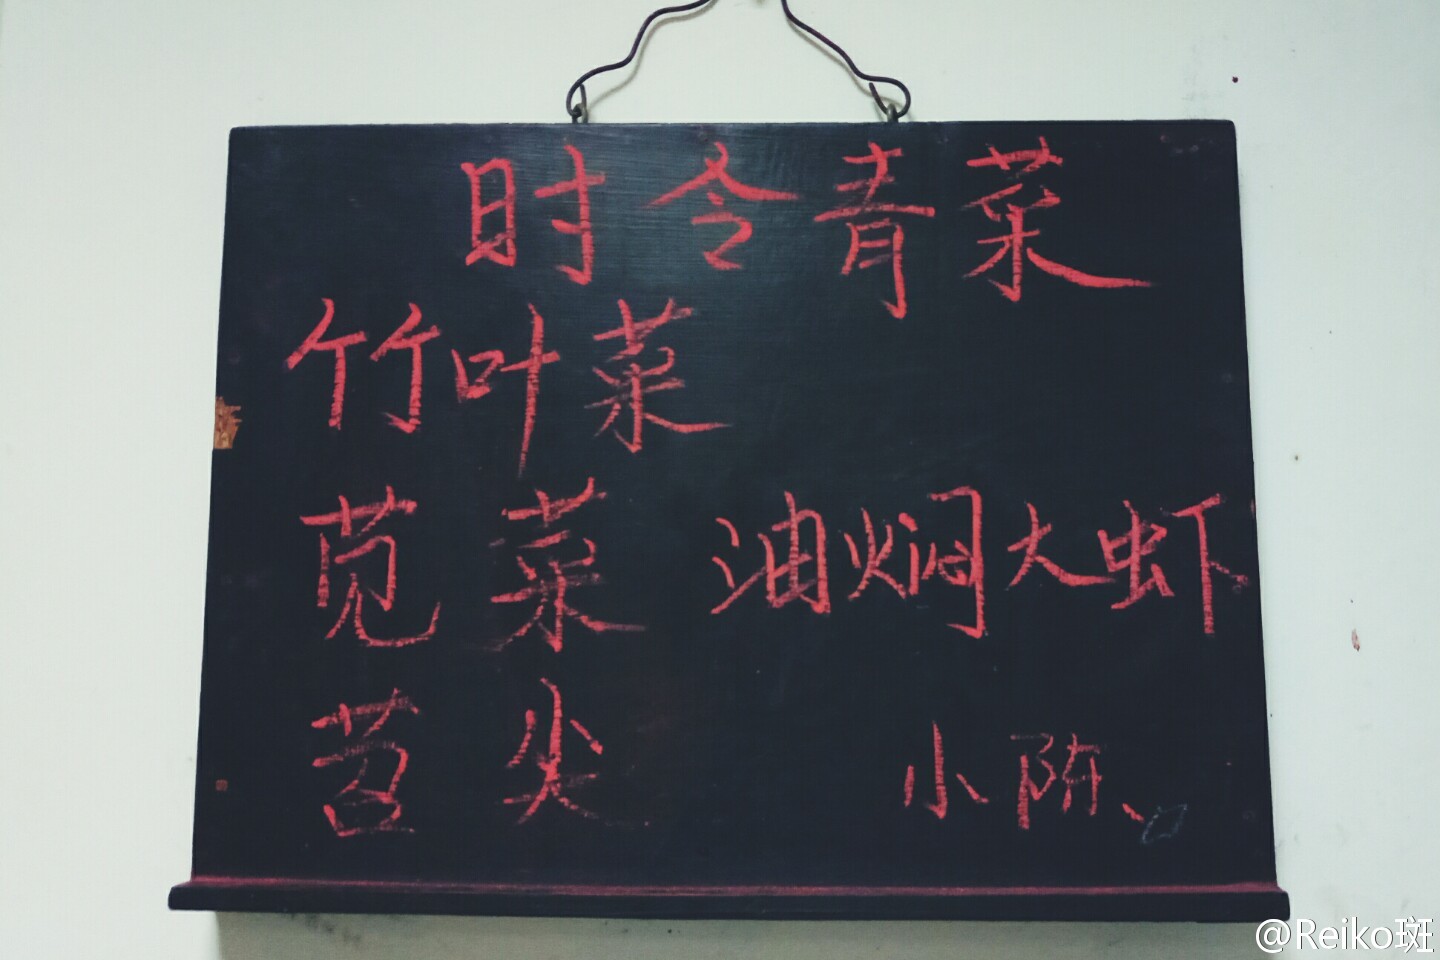 时令青菜
竹叶菜
苋菜 油焖大虾
苕尖 小陈、
@Reiko斑